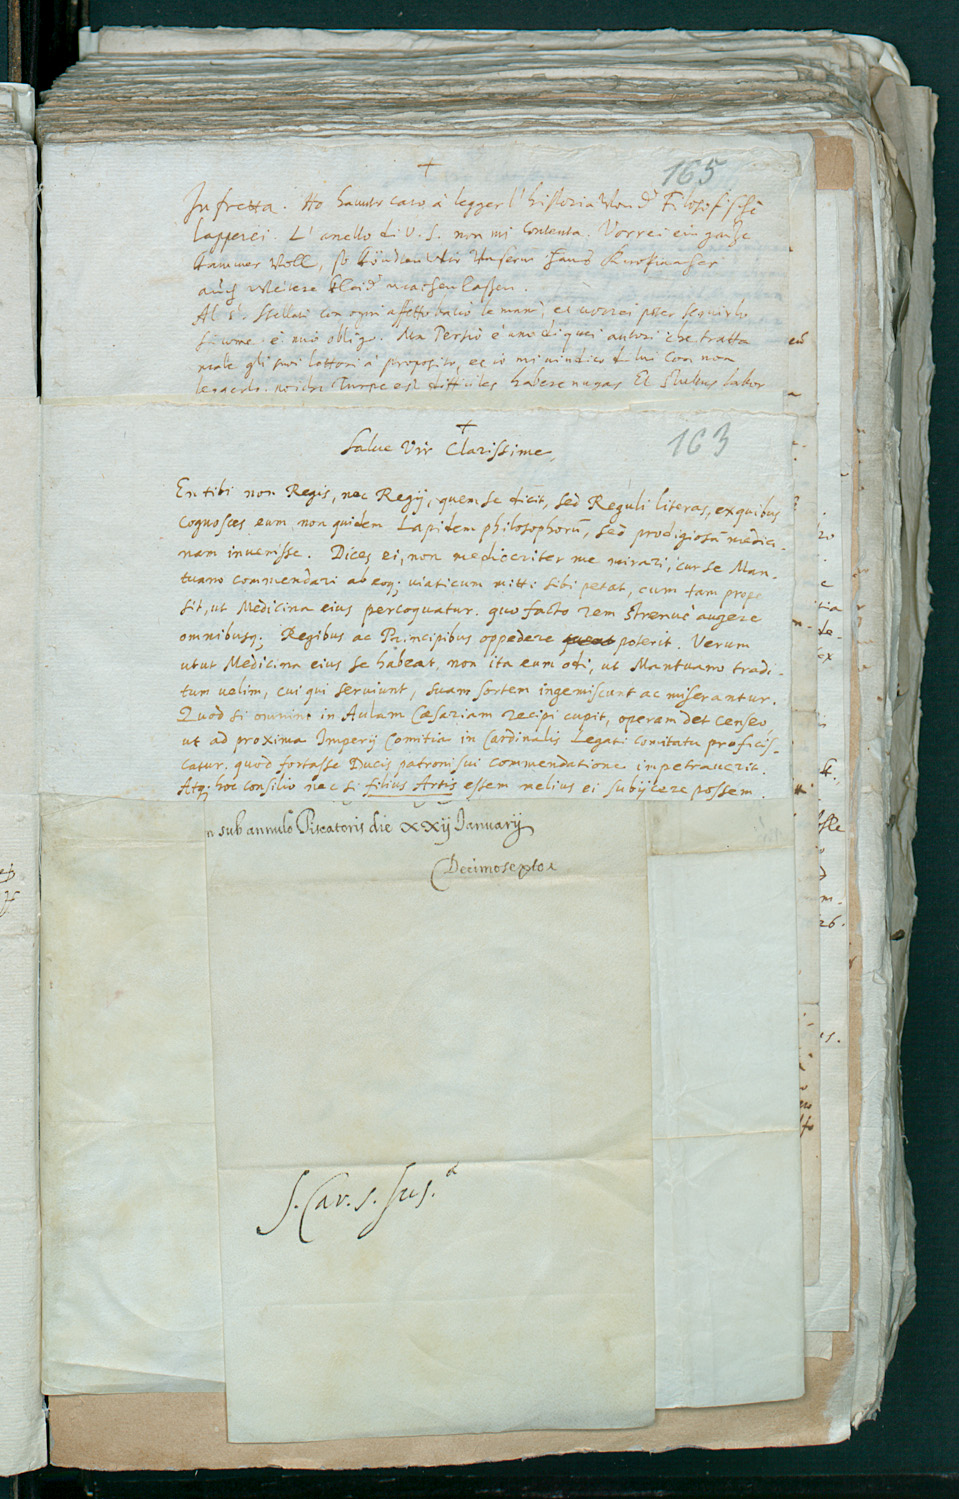 165
In fretta. Ho hauuto caro à legger l'historia von d Filosofische
lapperei. L' anello di V. S. non mi contenta. Vorrei ein ganze
Kammer voll, so könden wir unserm Hans
auch weitere kleid machen lassen.
Al S. Stellati con ogni affetto bacio le mani, et vorrei poter seguirlo
come è mio obligo. Ma Persio è uno di quei autori che tratta
male gli suoi lettori à proposito, et io mi uindico di lui con non
legerlo. poiche Turpe est difficiles habere nugas Et stultus labor
163
Salue Vir Clarissime,
En tibi non Regis, nec Regij, quem se dicit, sed Reguli literas, ex quibus
cognosces eum non quidem Lapidem philosophorũ, sed prodigiosã medici-
nam inuenisse. Dices ei, non mediocriter me mirari, cur se Man-
tuano commendari ab eoq; uiaticum mitti sibi petat, cum tam prope
sit, ut Medicina eius percoquatur. quo facto rem strenuè augere
omnibusq; Regibus ac Principibus oppedere poterit. Verum
utut Medicina eius se habeat, non ita eum odi, ut Mantuano tradi-
tum uelim, cui qui seruiunt, suam sortem ingemiscunt ac miserantur.
Quod si omnino in Aulam Cæsariam recipi cupit, operam det censeo
ut ad proxima Imperij Comitia in Cardinalis Legati comitatu proficis-
catur. quod fortasse Ducis patroni sui commendatione impetrauerit.
Atq; hoc consilio nec si filius Artis essem melius ei subijcere possem.
n sub annulo Piscatoris die xxij Ianuarij
Decimosexto
S. Car. S. Sus.ª